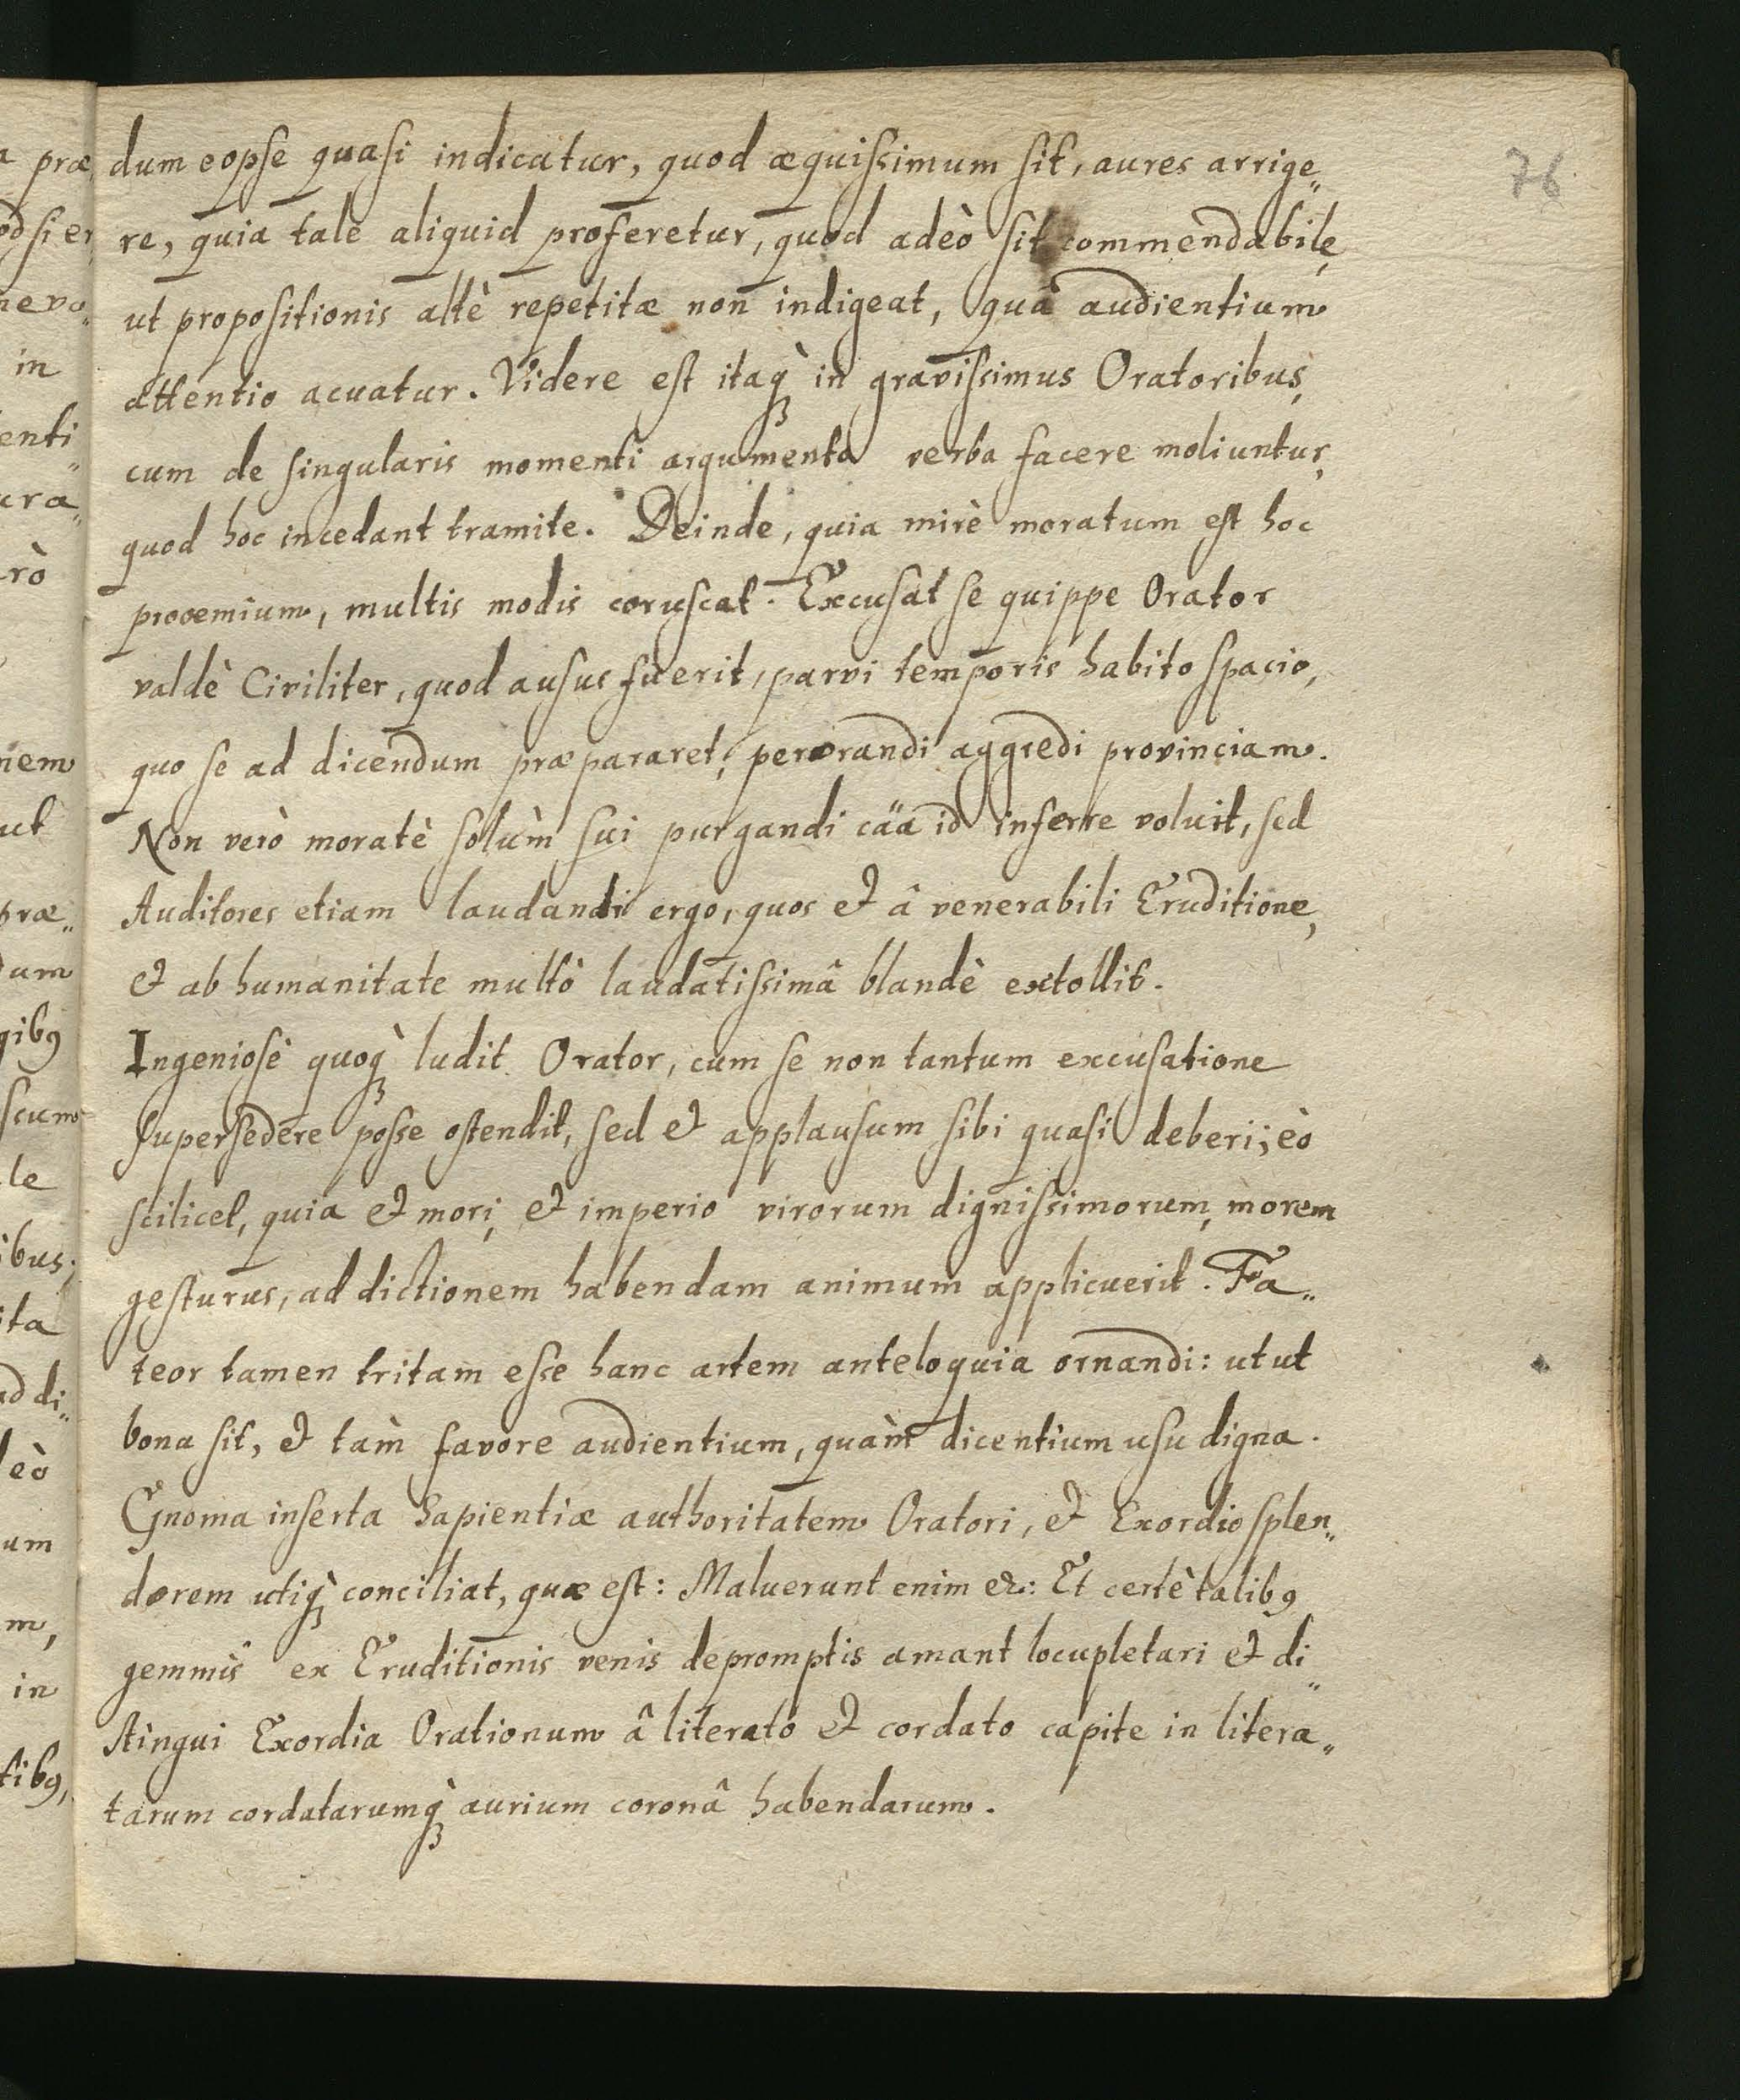 76
dum eopse quasi indicatur, quod æquissimum sit, aures arrige„
re, quia tale aliquid proferetur, quod adeò sit commendabile,
ut propositionis altè repetitæ non indigeat, quâ audientium
attentio acuatur. Videre est itaq̀ꝫ in gravissimus Oratoribus,
cum de singularis momenti argumento verba facere moliuntur,
quod hoc incedant tramite. Deinde, quia mirè moratum est hoc
prooemium, multis modis coruscat. Excusat se quippe Orator
valdè Civiliter, quod ausus fuerit, parvi temporis habito spacio,
quo se ad dicendum præpararet, perorandi aggredi provinciam.
Non verò moratè solùm sui purgandi cäa id inferre voluit, sed
Auditores etiam laudandi ergo, quos et â venerabili Eruditione,
et ab humanitate multò laudatissimâ blandè extollit.
Ingeniosè quoq̀ꝫ ludit Orator, cum se non tantum excusatione
supersedere posse ostendit, sed et applausum sibi quasi deberi; eò
scilicet, quia et mori, et imperio virorum dignissimorum, morem
gesturus, ad dictionem habendam animum applicuerit. Fa„
teor tamen tritam esse hanc artem anteloquia ornandi: utut
bona sit, et tam̀ favore audientium, quàm dicentium usu digna.
Gnoma inserta Sapientiæ authoritatem Oratori, et Exordio splen„
dorem utiq̀ꝫ conciliat, quæ est: Maluerunt enim &: Et certè talibꝰ
gemmis ex Eruditionis venis depromptis amant locupletari et di„
stingui Exordia Orationum â literato et cordato capite in litera„
tarum cordatarumq̀ꝫ aurium coronâ habendarum.